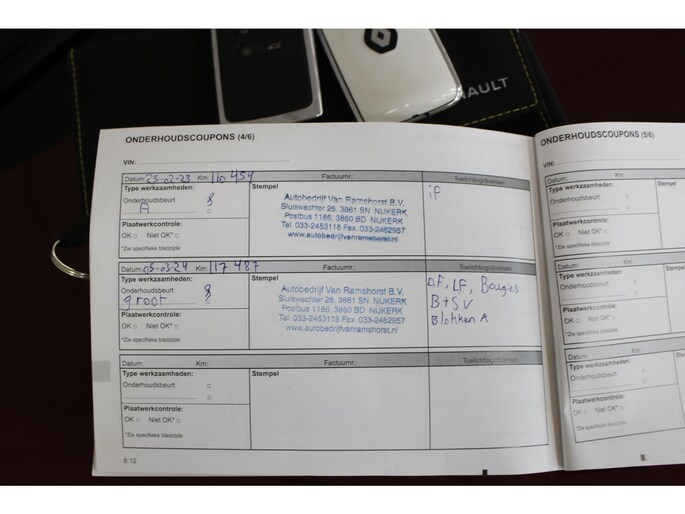 RENAULT
ONDERHOUDSCOUPONS (4/6)
VIN:
Datum: 23-02-23 Km: 110 454 Factuurnr.: Toelichting/diversen
Type werkzaamheden:
Onderhoudsbeurt
A
Plaatwerkcontrole:
OK Niet OK*
*Zie specifieke bladzijde
Stempel
Autobedrijf Van Ramshorst B.V.
Sluiswachter 25, 3861 SN NIJKERK
Postbus 1186, 3860 BD NIJKERK
Tel. 033-2453118 Fax. 033-2462957
www.autobedrijfvanramshorst.nl
if
Datum: 05-03-24 Km: 117 487 Factuurnr.: Toelichting/diversen
Type werkzaamheden:
Onderhoudsbeurt
groot
Plaatwerkcontrole:
OK Niet OK*
*Zie specifieke bladzijde
Stempel
Autobedrijf Van Ramshorst B.V.
Sluiswachter 25, 3861 SN NIJKERK
Postbus 1186, 3860 BD NIJKERK
Tel. 033-2453118 Fax. 033-2462957
www.autobedrijfvanramshorst.nl
LF, Bougies
B+SV
Blokken A
Datum: Km: Factuurnr.: Toelichting/diversen
Type werkzaamheden:
Onderhoudsbeurt
Plaatwerkcontrole:
OK Niet OK*
*Zie specifieke bladzijde
Stempel
6.12
ONDERHOUDSCOUPONS (5/6)
VIN:
Datum: Km:
Type werkzaamheden:
Onderhoudsbeurt
Plaatwerkcontrole:
OK Niet OK*
*Zie specifieke bladzijde
Stempel
Datum: Km:
Type werkzaamheden:
Onderhoudsbeurt
Plaatwerkcontrole:
OK Niet OK*
*Zie specifieke bladzijde
Stempel
Datum: Km:
Type werkzaamheden:
Onderhoudsbeurt
Plaatwerkcontrole:
OK Niet OK*
*Zie specifieke bladzijde
Stempel